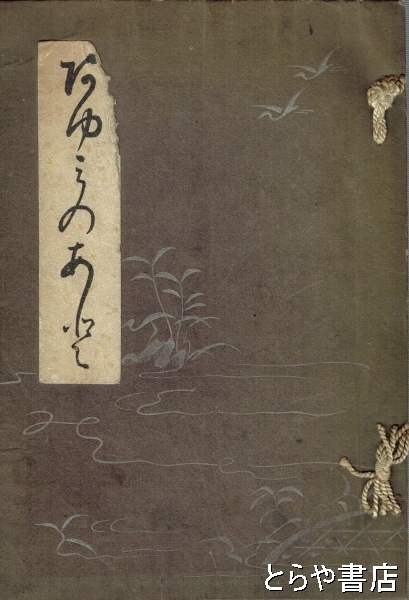 あゆみのあと
とらや書店